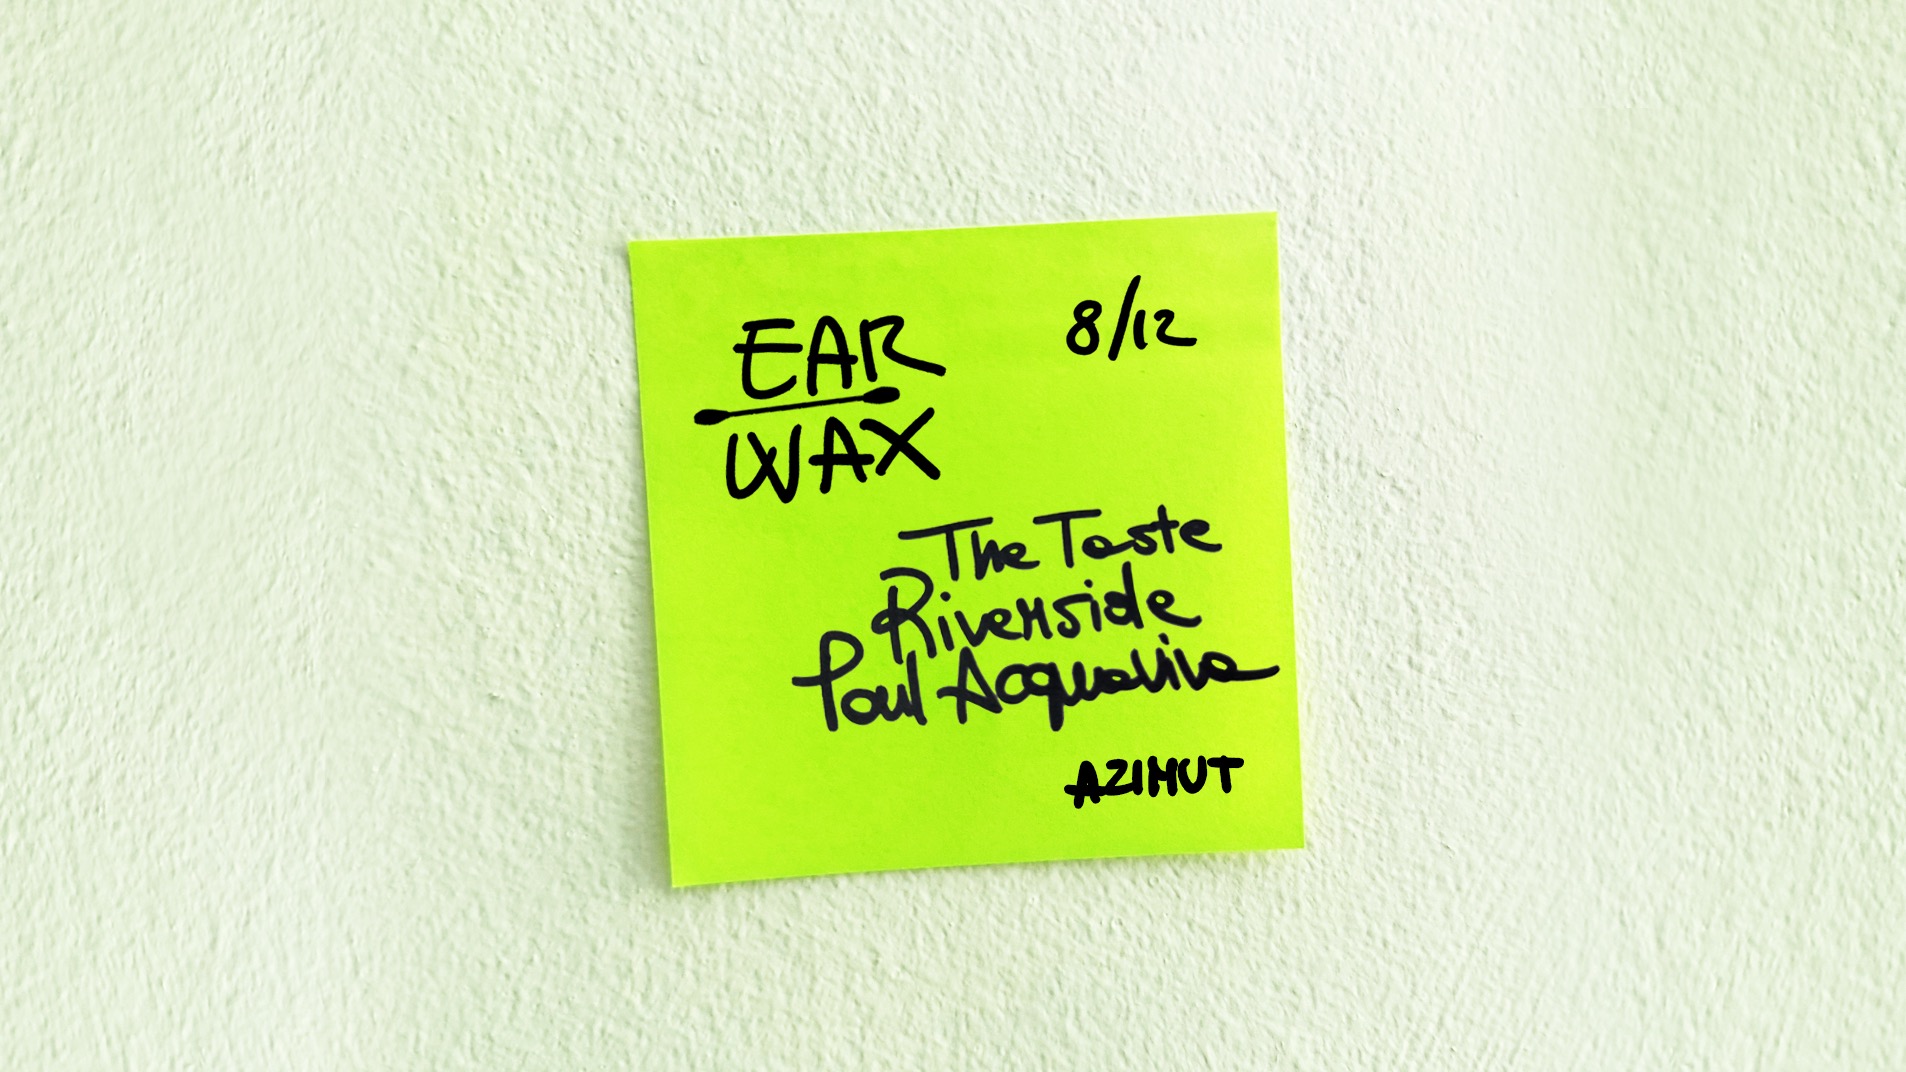 EAR
WAX
8/12
The Taste
Riverside
Paul Acquaviva
AZIMUT